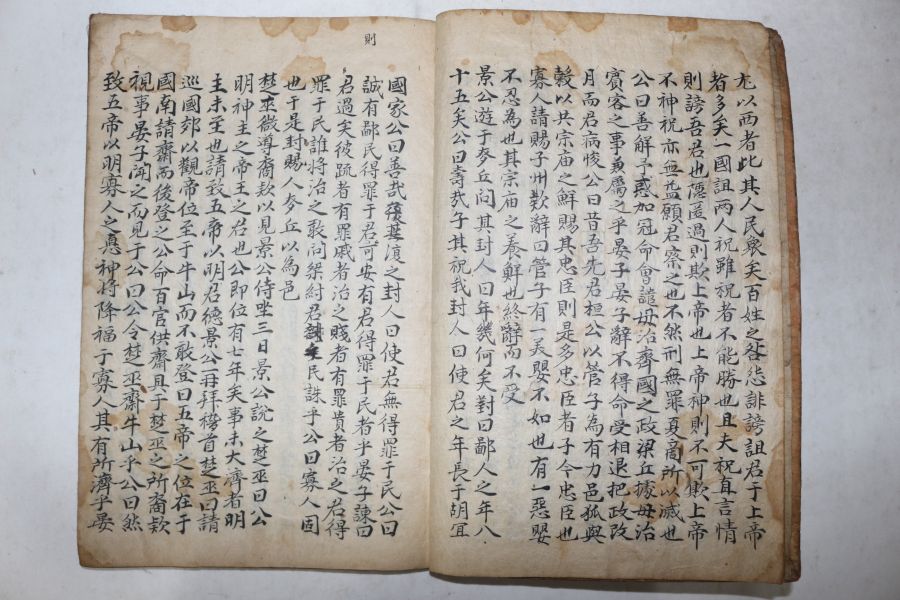 尤以西者此其人民衆矣百姓之咎怨誹謗詛君于上帝
者多矣一國詛兩人祝雖祝者不能勝也且夫祝直言情
則謗吾君也隱匿過則欺上帝也上帝神則不可欺上帝
不神祝亦無益願君察之也不然刑無罪夏商所以滅也
公曰善解予惑加冠命會譴毋治齊國之政梁丘據毋治
賓客之事兼屬之乎晏子晏子辭不得命受相退把政改
月而君病悛公曰昔吾先君桓公以管子為有力邑狐與
穀以共宗庙之鮮賜其忠臣則是多忠臣者子今忠臣也
寡人請賜子州欵辭曰管子有一美嬰不如也有一惡嬰
不忍為也其宗庙之養鮮也終辭而不受
景公遊于麥丘問其封人曰年幾何矣對曰鄙人之年八
十五矣公曰壽哉子其祝我封人曰使君之年長于胡宜
則
國家公曰善哉之封人曰使君無得罪于民公曰
誠有鄙民得罪于君可安有君得罪于民者乎晏子諫曰
君過矣彼疏者有罪戚者治之賤者有罪貴者治之君得
罪于民誰將治之敢問桀紂君誅民誅乎公曰寡人固
也于是封賜人麥丘以為邑
楚巫微導裔欵以見景公侍坐三日景公說之楚巫曰公
明神主之帝王之君也公即位有七年矣事未大濟者明
主未至也請致五帝以明君德景公再拜稽首楚巫曰請
巡國郊以觀帝位至于牛山而不敢登曰五帝之位在于
國南請齋而後登之公命百官供齋具于楚巫之所裔欵
視事晏子聞之而見于公曰公令楚巫齋牛山乎公曰然
致五帝以明寡人之悳神將降福于寡人其有所濟乎晏